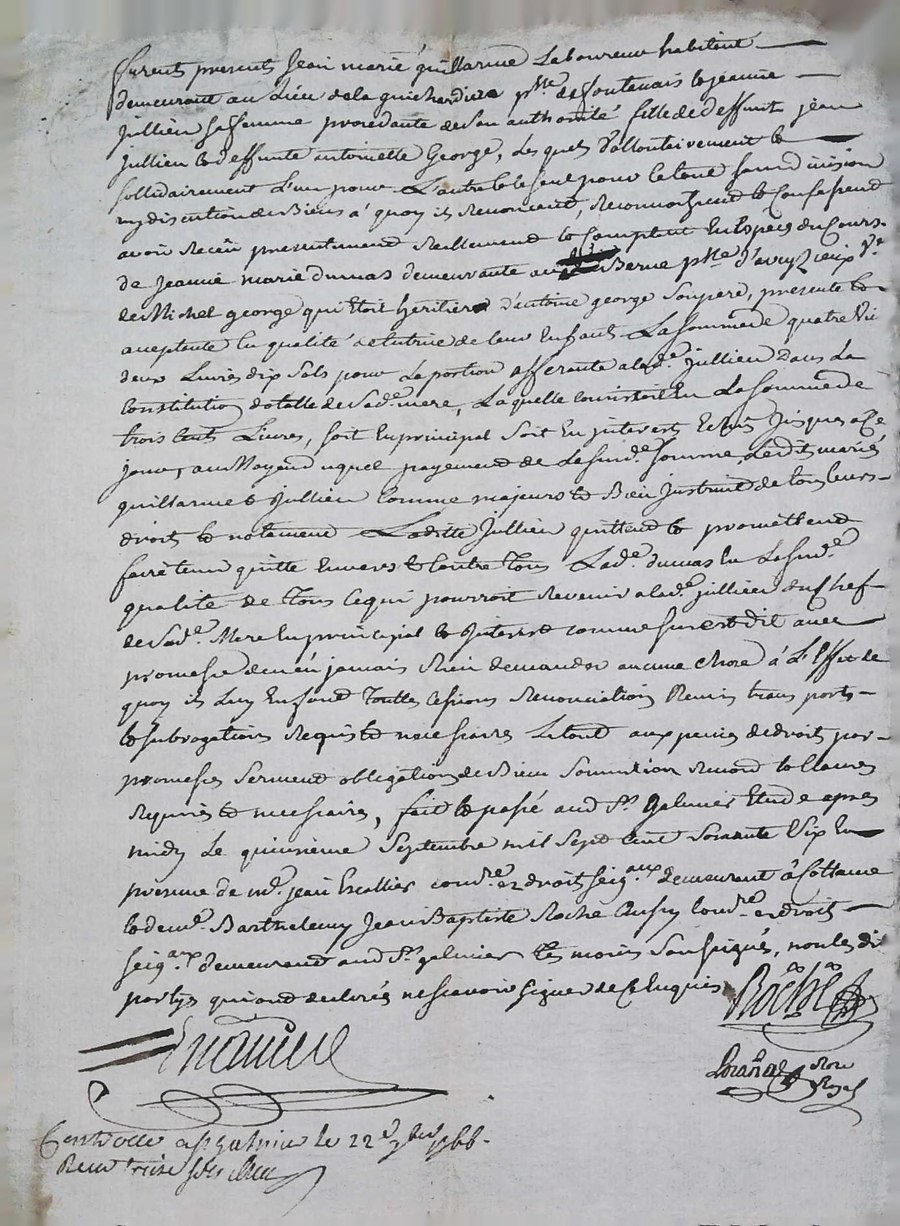 furent presents Jean marie guillarme Laboureur habitent
demeurant au Lieu de la guichardiere psse de fontenais & jeanne
Jullien sa femme procedante de Son authorité fille de deffunt jean
Jullien & deffunte antoinette George, Les quels Vollontairement &
sollidairement L'un pour L'autre & le seul pour le tout sans division
ny discution de Biens a quoy ils Renoncent, Reconnoissent & Confessent
avoir Recëu presentement Reellement & Comptent En Espece du Cours
de Jeanne marie dumas demeurante au Berne psse d'aveyzieux Ve
de Michel george qui Etoit heritier d'antoine george Son pere, presente &
aceptante En qualité de tutrice de leur Enfants La Somme de quatre Vt
deux Livres dix Sols pour La portion afferante a lade Jullien Dans La
Constitution dotalle de Sade mere, Laquelle consistoit En La Somme de
trois Cents Livres, soit En principal soit En interest Echus Jusques a Ce
jour, au Moyen du quel payement de La sude somme, Lesdits mariés
guillarme & Jullien Comme majeurs & Bien Instruit de tous leurs
droit & notament Laditte Jullien quittent & promettent
faire tenir quitte Envers & Contre Tous Lade dumas En La sude
qualité de Tous Ce qui pourroit Revenir a lade jullien du Chef
de Sade Mere En principal & Interest comme sus est dit avec
promesse de n'en jamais Rien demander aucune chose à L'Effet de
quoy ils Luy En font Touttes Cessions Renonciation Remis transports
& subrogations Requis & necessaires Le tout aux peines de droits par
promesses serment obligation de Biens Soumission Renond & Clauses
Requises & necessaires, fait & passé aud St galmier Etude apres
midy Le quinsieme Septembre mil Sept Cent Soixante Six En
presence de Mr jean Escallier comre es droit seigaux demeurant à Collanne
& de mr Barthelemy Jean Baptiste Roche Comre es droit
seigaux demeurand aud St galmier Témoins Soussignés, non les dit
partys qui ont declarés ne scavoir signer de Ce Enquis
Roche
Nore
Royal
Controllé a St galmier le 22e 7bre 1766
Receu treise sols